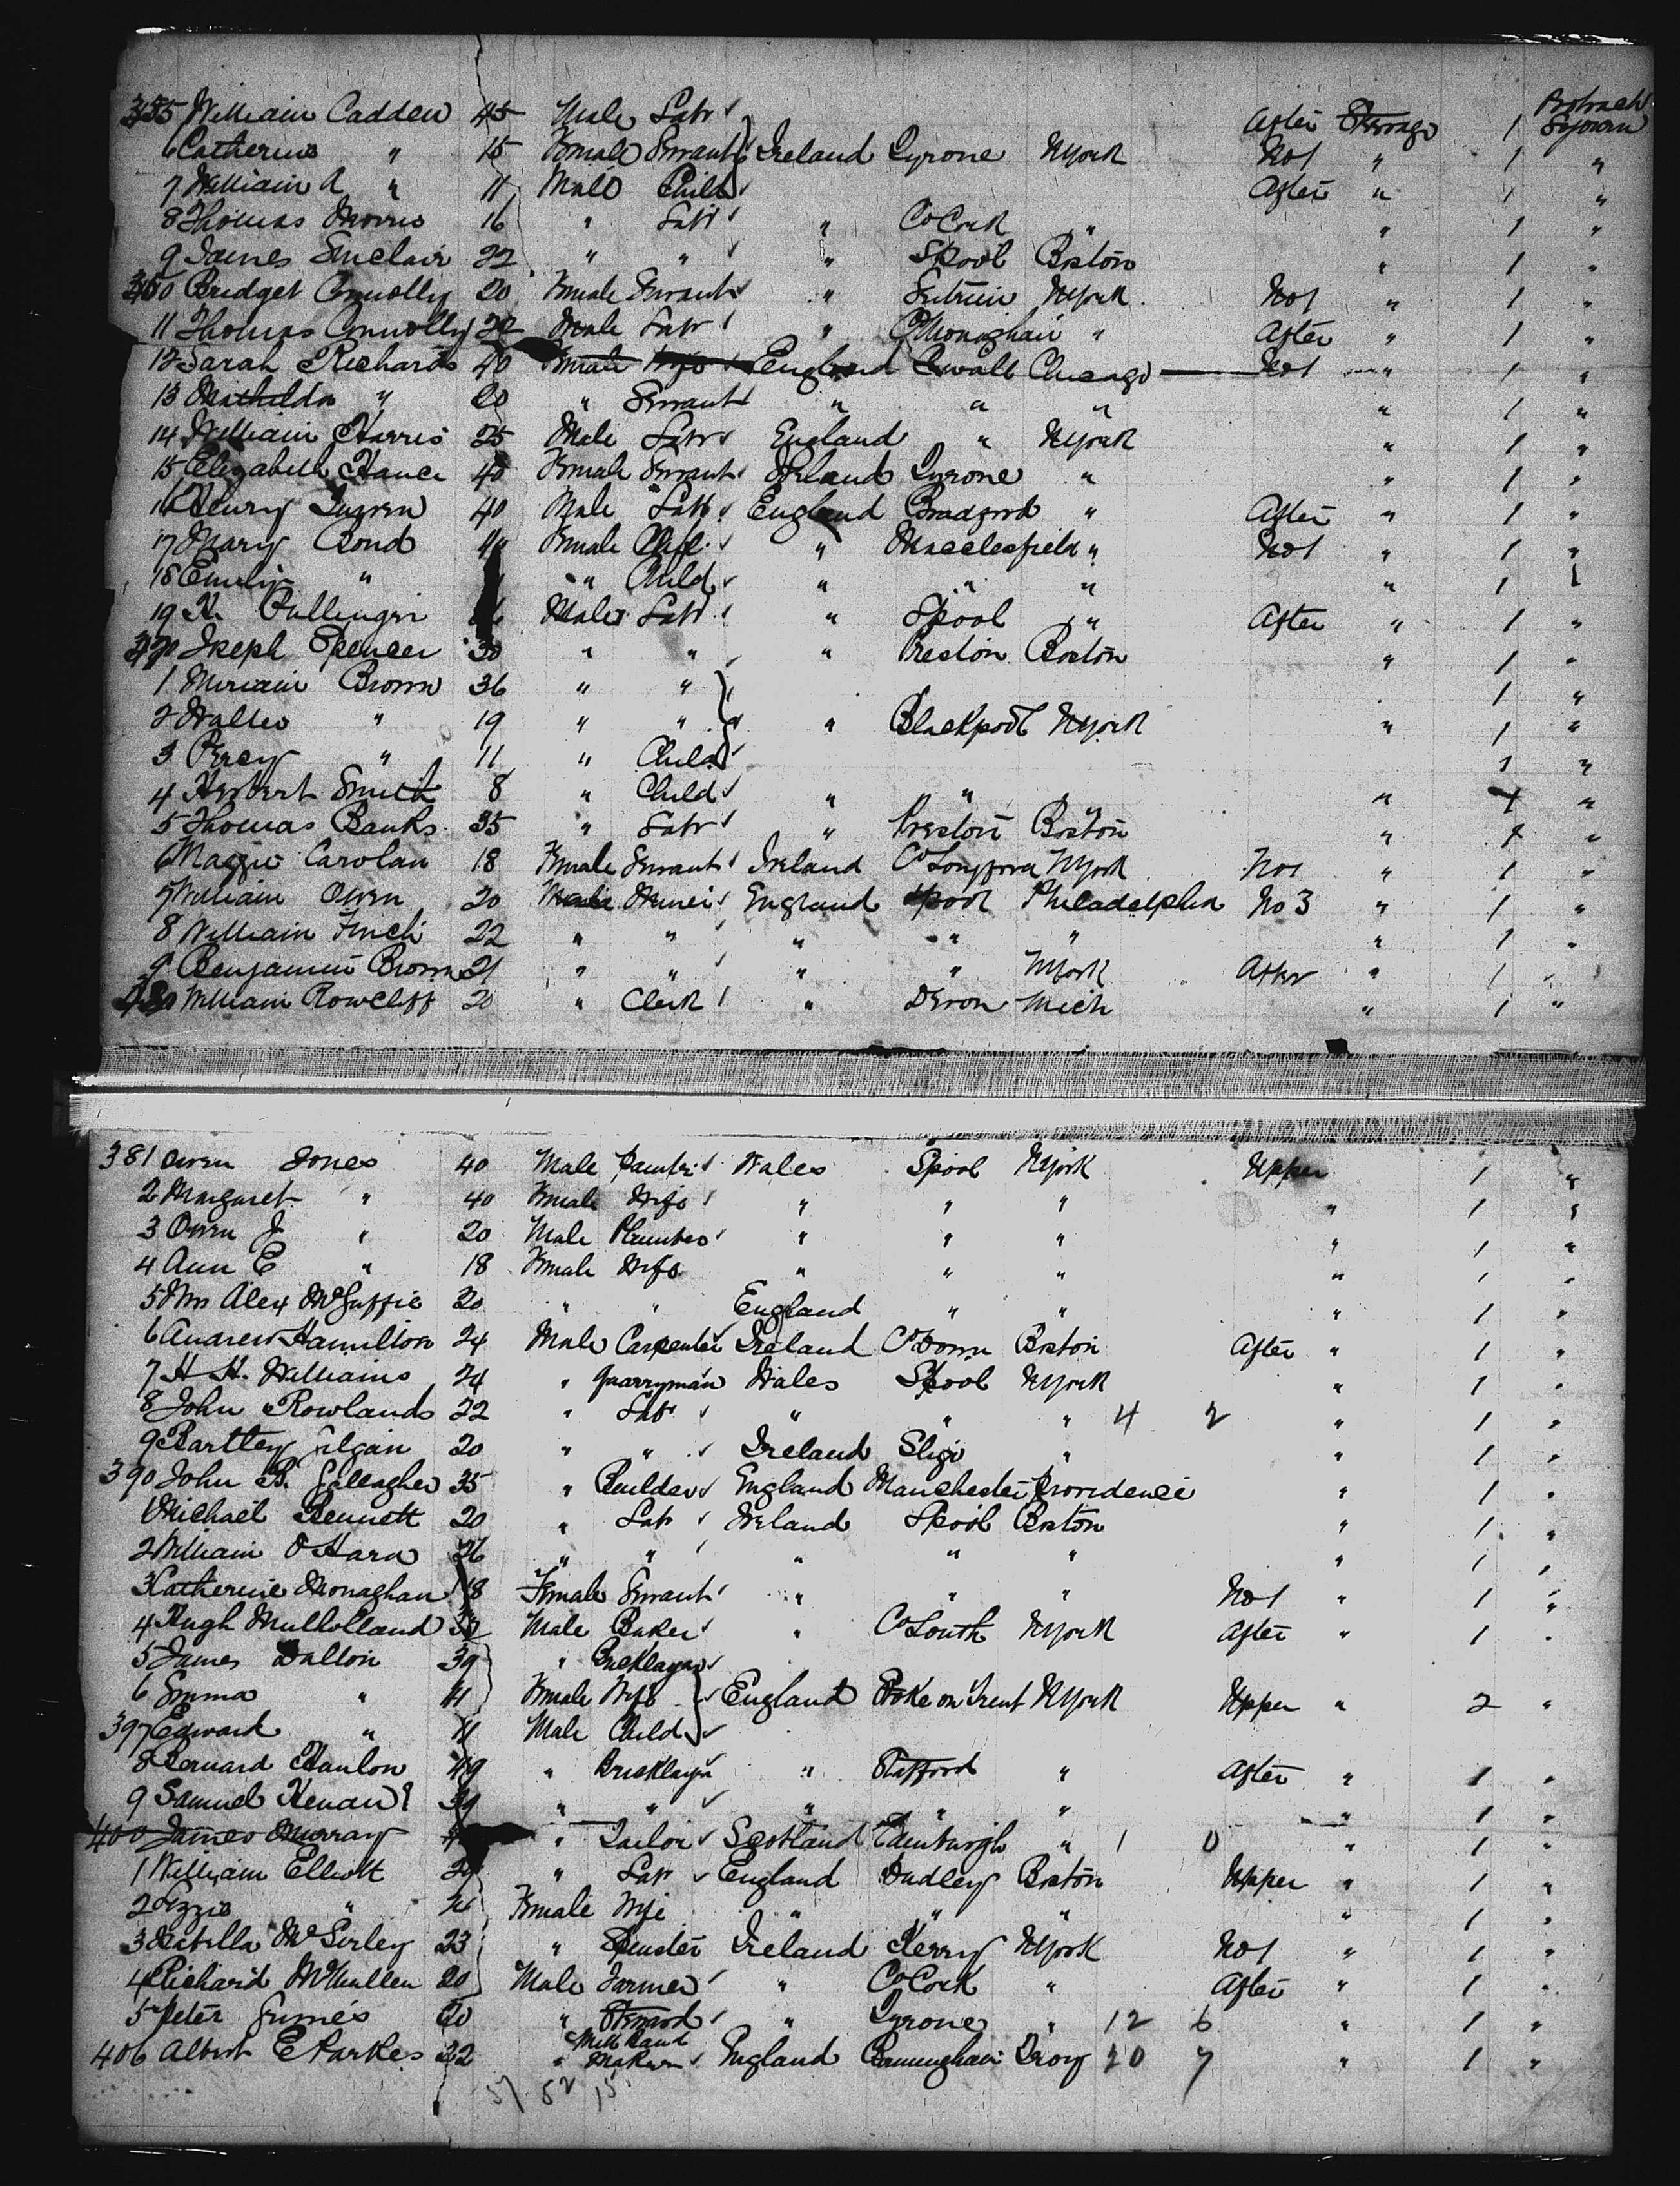 355 William Cadden 45 Male Labr After Steerage 1 Protract Sojourn
6 Catherine " 15 Female Servant Ireland Tyrone NYork No1 " 1 "
7 William A " 11 Male Child After " 1 "
8 Thomas Morris 16 " Labr " Co Cork " " 1 "
9 James Sinclair 22 " " " Lpool Boston " 1 "
360 Bridget Connolly 20 Female Servant " Leitrim NYork No1 " 1 "
11 Thomas Connolly 22 Male Labr " Co Monaghan " After " 1 "
12 Sarah Richards 40 Female Wife England Cwall Chicago No1 " 1 "
13 Mathilda " 20 " Servant " " " " 1 "
14 William Harris 25 Male Labr England " NYork " 1 "
15 Elizabeth Hance 40 Female Servant Ireland Tyrone " " 1 "
16 Henry 40 Male Labr England Bradford " After " 1 "
17 Mary Bond Female Wife " Macclesfield " No1 " 1 "
18 Emily " " Child " " " " 1
19 H. Bullinger Male Labr " Lpool " After " 1 "
370 Joseph Spencer 30 " " " Preston Boston " 1 "
1 Meriam Brown 36 " " 1 "
2 Walter " 19 " " " Blackpool NYork " 1 "
3 Percy " 11 " Child 1 "
4 Herbert Smith 8 " Child " " " " 1 "
5 Thomas Banks 35 " Labr " Preston Boston " 1 "
6 Maggie Carolan 18 Female Servant Ireland Co Longford NYork No1 " 1 "
7 William Owen 20 Male Miner England Lpool Philadelphia No 3 " 1 "
8 William Finch 22 " " " " " " 1 "
9 Benjamin Brown 21 " " " " NYork After " 1 "
380 William Rowcliff 20 " Clerk " Devon Mich " 1 "
381 Owen Jones 40 Male Painter Wales Lpool NYork Upper 1 "
2 Margaret " 40 Female Wife " " " " 1 "
3 Owen J " 20 Male Plumber " " " " 1 "
4 Ann E " 18 Female Wife " " " " 1 "
5 Mrs Alex McGuffie 20 " " England " " " 1 "
6 Andrew Hamilton 24 Male Carpenter Ireland Co Down Boston After " 1 "
7 H H. Williams 24 " Quarryman Wales Lpool NYork " 1 "
8 John Rowlands 22 " Labr " " " 4 2 " 1 "
9 Bartley Gilgan 20 " " Ireland Sligo " " 1 "
390 John B. Gallagher 35 " Builder England Manchester Providence " 1 "
1 Michael Bennett 20 " Labr Ireland Lpool Boston " 1 "
2 William O Hara 26 " " " " " " 1 "
3 Catherine Monaghan 18 Female Servant " " " No1 " 1 "
4 Hugh Mulholland 32 Male Baker " Co Louth NYork After " 1 "
5 James Dalton 39 " Bricklayer
6 Emma " 41 Female Wife England Stoke on Trent NYork Upper " 2 "
397 Edward " 11 Male Child
8 Bernard Hanlon 49 " Bricklayer " Stafford " After " 1 "
9 Samuel Kenan 39 " " " " " " 1 "
400 James Murray " Tailor Scotland Edinburgh " 1 0 " 1 "
1 William Elliott 24 " Labr England Dudley Boston Upper " 1 "
2 Lizzie " Female Wife " " " " 1 "
3 Isabella McSorley 23 " Spinster Ireland Kerry NYork No1 " 1 "
4 Richard McMullen 20 Male Farmer " Co Cork " After " 1 "
5 Peter 20 " Steward " Tyrone " 12 6 " 1 "
Mill Hand
406 Albert E Parkes 22 " England Birmingham Troy 20 7 " 1 "
57 52 15